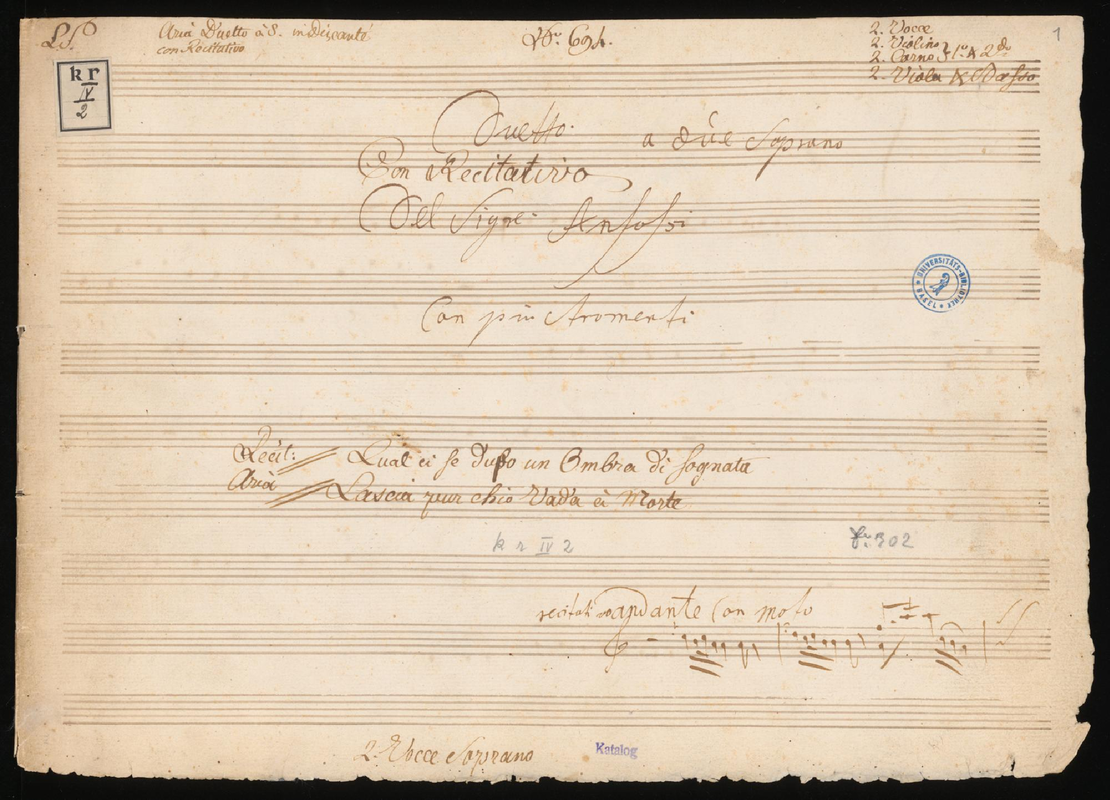 Aria Duetto à 8. in Discanté
con Recitativo
No. 694.
2. Vocce
2. Violino
2. Corno 1o. & 2do
2. Viola & Basso
1
kr
IV
2
Duetto. a düe Soprano
Con Recitativo
Del Signe: Anfossi
UNIVERSITÄTS-BIBLIOTHEK BASEL
Con piu stromenti
Recit: Qual ci se dupo un Ombra di sognata
Aria Lascia pur chio Vada à Morte
k r IV 2
302
recitativo andante Con moto
2. Vocce Soprano
Katalog